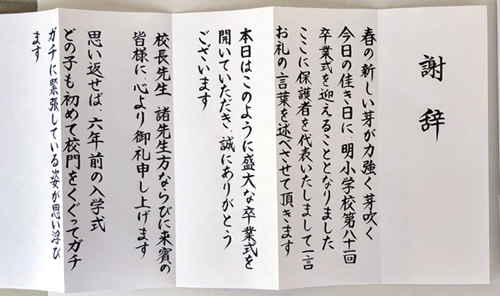 謝辞
春の新しい芽が力強く芽吹く
今日の佳き日に、明小学校第八十一回
卒業式を迎えることとなりました
ここに保護者を代表いたしまして一言
お礼の言葉を述べさせて頂きます
本日はこのように盛大な卒業式を
開いていただき、誠にありがとう
ございます
校長先生 諸先生方ならびに来賓の
皆様に、心より御礼申し上げます
思い返せば、六年前の入学式
どの子も初めて校門をくぐってガチ
ガチに緊張している姿が思い浮び
ます